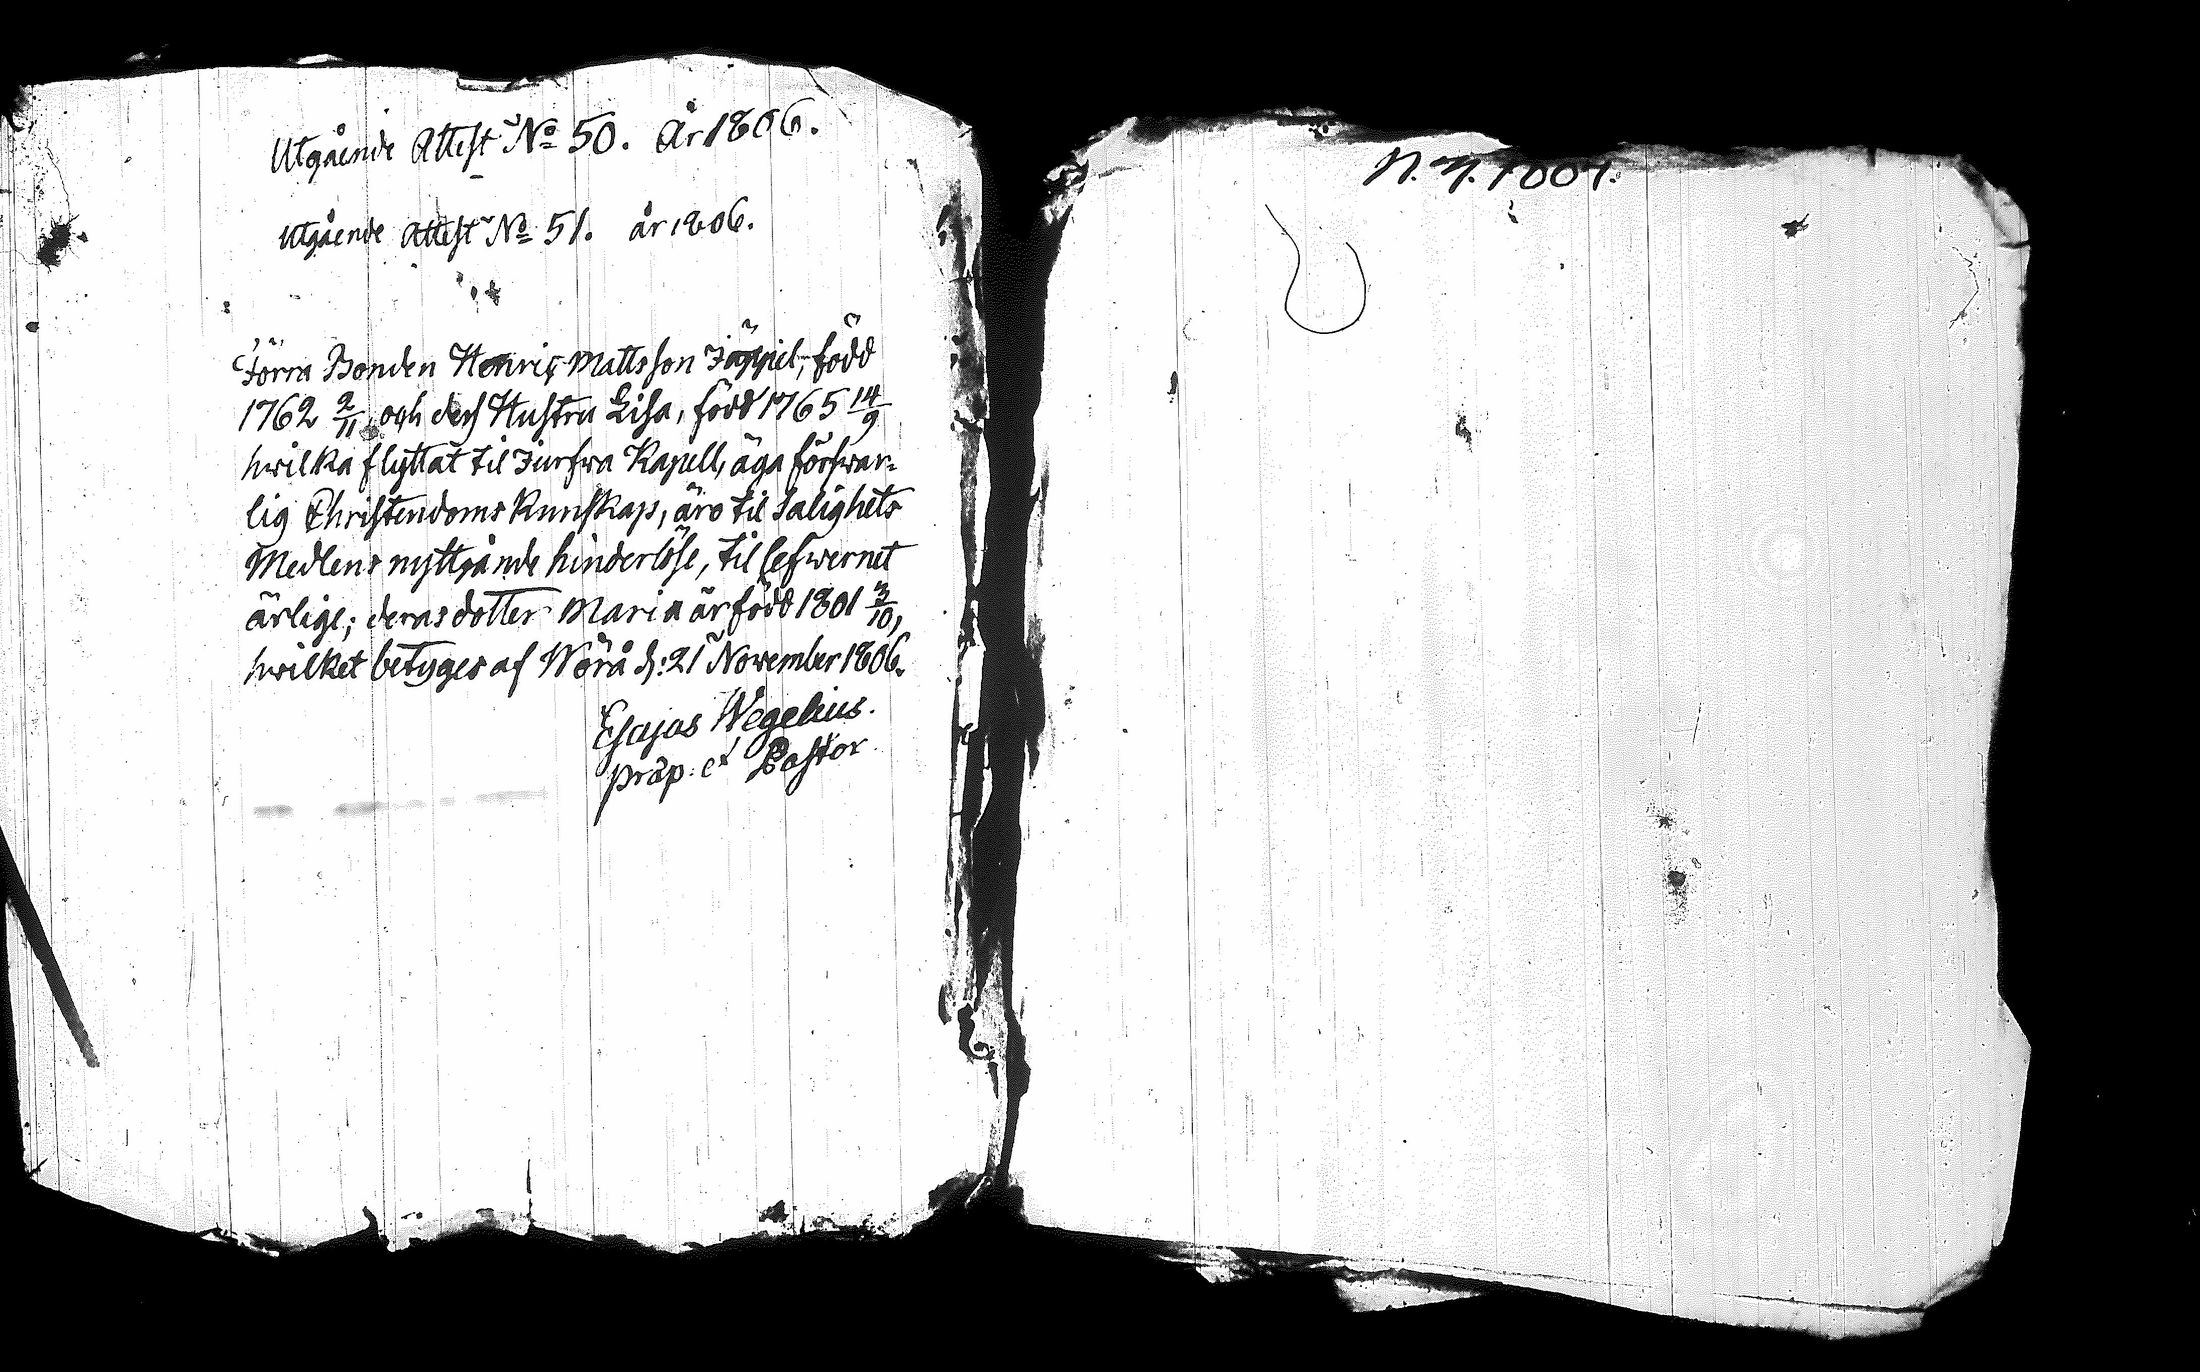 Utgående Attest No 50. År 1806.
Utgående Attest No 51. år 1806.
Förra Bonden Henric Mattsson Jäppil, född
1762 2/11, och des Hustru Lisa, född 1765 14/9
hwilka flyttat til Jurfwa Kapell, äga förswar-
lig Christendoms Kunskap, äro til Salighets
Medlens nyttjande hinderlöse, til lefwernet
ärlige; deras dotter Maria är född 1801 3/10,
hwilket betyges af Wörå d: 21 November 1806.
Esajas Wegelius.
Præp: et Pastor